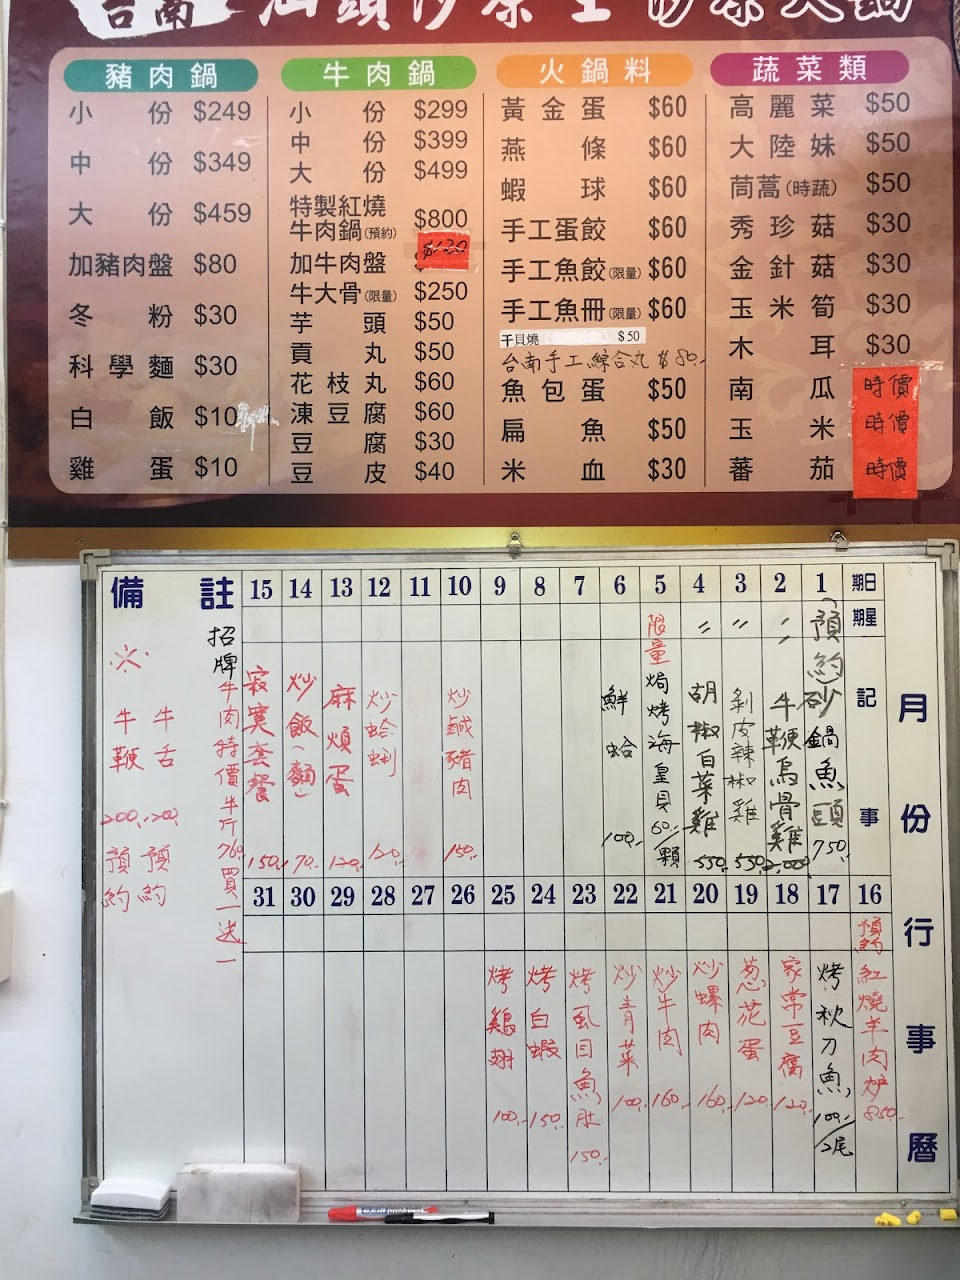 台南 汕頭沙茶王 沙茶火鍋
豬肉鍋
小份 $249
中份 $349
大份 $459
加豬肉盤 $80
冬粉 $30
科學麵 $30
白飯 $10
雞蛋 $10
牛肉鍋
小份 $299
中份 $399
大份 $499
特製紅燒
牛肉鍋(預約) $800
加牛肉盤 $120
牛大骨(限量) $250
芋頭 $50
貢丸 $50
花枝丸 $60
凍豆腐 $60
豆腐 $30
豆皮 $40
火鍋料
黃金蛋 $60
燕條 $60
蝦球 $60
手工蛋餃 $60
手工魚餃(限量) $60
手工魚冊(限量) $60
干貝燒 $50
台南手工綜合丸 $80.-
魚包蛋 $50
扁魚 $50
米血 $30
蔬菜類
高麗菜 $50
大陸妹 $50
茼蒿(時蔬) $50
秀珍菇 $30
金針菇 $30
玉米筍 $30
木耳 $30
南瓜 時價
玉米 時價
蕃茄 時價
月份行事曆
日期
星期
記事
1 (預約) 砂鍋魚頭 750.-
2 〃 牛鞭烏骨雞 2,000
3 〃 剝皮辣椒雞 550
4 〃 胡椒白菜雞 550
5 限量 焗烤海皇貝 60/顆
6 鮮蛤 100.-
7
8
9
10 炒鹹豬肉 150.-
11
12 炒蛤蜊 120.-
13 麻煩蛋 120.-
14 炒飯(麵) 70.-
15 寂寞套餐 150.-
16 預約 紅燒羊肉爐 850.-
17 烤秋刀魚 100/2尾
18 家常豆腐 120.-
19 蔥花蛋 120.-
20 炒螺肉 160.-
21 炒牛肉 160.-
22 炒青菜 100.-
23 烤虱目魚肚 150.-
24 烤白蝦 150.-
25 烤雞翅 100.-
26
27
28
29
30
31
備註
招牌
牛肉特價 半斤760買一送一
※
牛舌 200.- 預約
牛鞭 200.- 預約